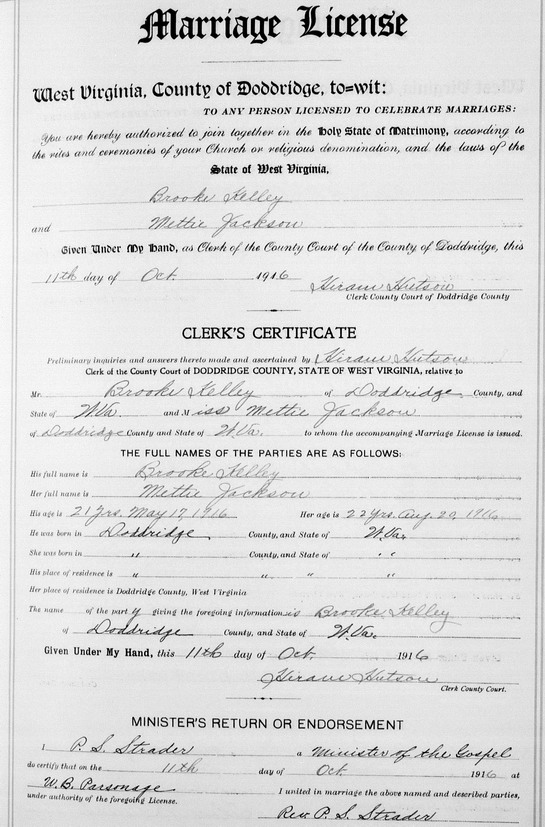 Marriage License
West Virginia, County of Doddridge, to=wit:
TO ANY PERSON LICENSED TO CELEBRATE MARRIAGES:
You are hereby authorized to join together in the Holy State of Matrimony, according to
the rites and ceremonies of your Church or religious denomination, and the laws of the
State of West Virginia,
Brooke Kelley
and Mettie Jackson
Given Under My Hand, as Clerk of the County Court of the County of Doddridge, this
11th day of Oct. 1916
Hiram Hutson
Clerk County Court of Doddridge County
CLERK'S CERTIFICATE
Preliminary inquiries and answers thereto made and ascertained by Hiram Hutson
Clerk of the County Court of DODDRIDGE COUNTY, STATE OF WEST VIRGINIA, relative to
Mr. Brooke Kelley of Doddridge County, and
State of W.Va. and Miss Mettie Jackson
of Doddridge County and State of W.Va. to whom the accompanying Marriage License is issued.
THE FULL NAMES OF THE PARTIES ARE AS FOLLOWS:
His full name is Brooke Kelley
Her full name is Mettie Jackson
His age is 21 yrs. May 17, 1916 Her age is 22 yrs. Aug. 29, 1916
He was born in Doddridge County, and State of W.Va.
She was born in " County, and State of " "
His place of residence is " " " "
Her place of residence is Doddridge County, West Virginia
The name of the party giving the foregoing information is Brooke Kelley
of Doddridge County, and State of W.Va.
Given Under My Hand, this 11th day of Oct. 1916
Hiram Hutson
Clerk County Court.
MINISTER'S RETURN OR ENDORSEMENT
I P. S. Strader a Minister of the Gospel
do certify that on the 11th day of Oct. 1916 at
W.B. Parsonage I united in marriage the above named and described parties,
under authority of the foregoing License.
Rev. P. S. Strader